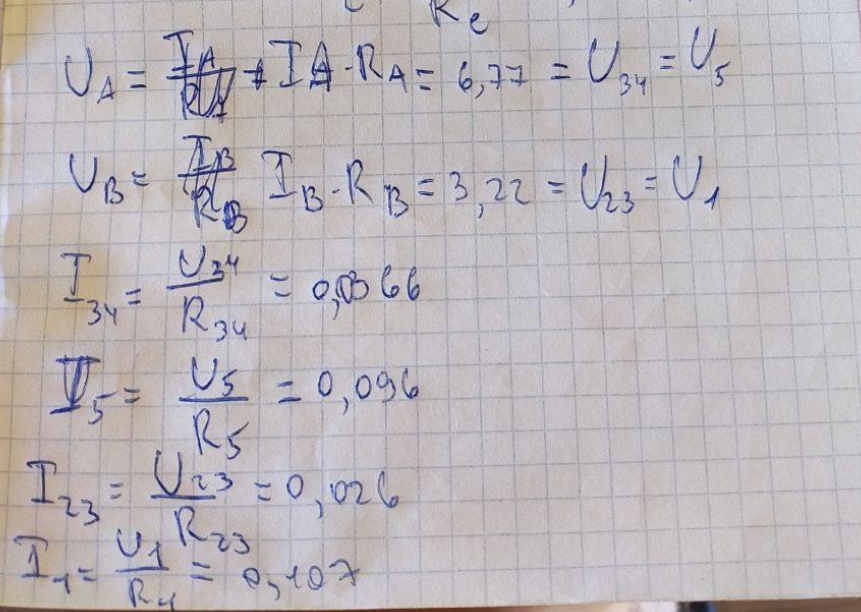 Re
U_A = I_A · R_A = 6,77 = U_34 = U_5
U_B = I_B · R_B = 3,22 = U_23 = U_1
I_34 = U_34 / R_34 = 0,0366
I_5 = U_5 / R_5 = 0,096
I_23 = U_23 / R_23 = 0,026
I_1 = U_1 / R_1 = 0,107